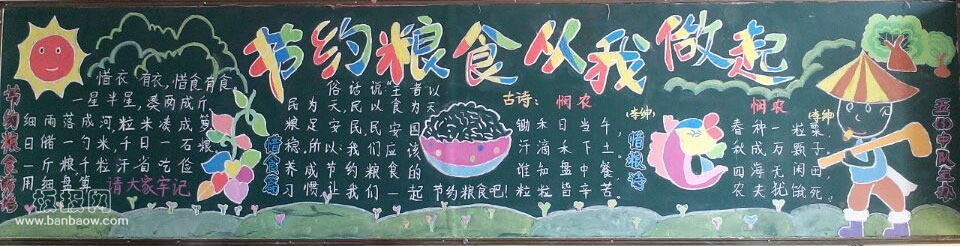 节约粮食从我做起
节约粮食谚语
惜衣有衣,惜食有食。
一星半星,凑两成斤。
细雨落成河,粒米凑成箩。
日储一勺米,千日一石粮。
一斤粮,千粒汗,省吃俭
用细盘算。 请大家牢记
惜食篇
俗话说:"王者以
民为天,民以食为天"
粮足民安,民安国
稳,所以我们应该
养成节约粮食的
习惯,让我们一起
节约粮食吧!
古诗: 悯农
(李绅)
锄禾日当午,
汗滴禾下土。
谁知盘中餐,
粒粒皆辛苦。
惜粮诗
悯农
(李绅)
春种一粒粟,
秋收万颗子。
四海无闲田,
农夫犹饿死。
中队主办
板报网
www.banbaow.com